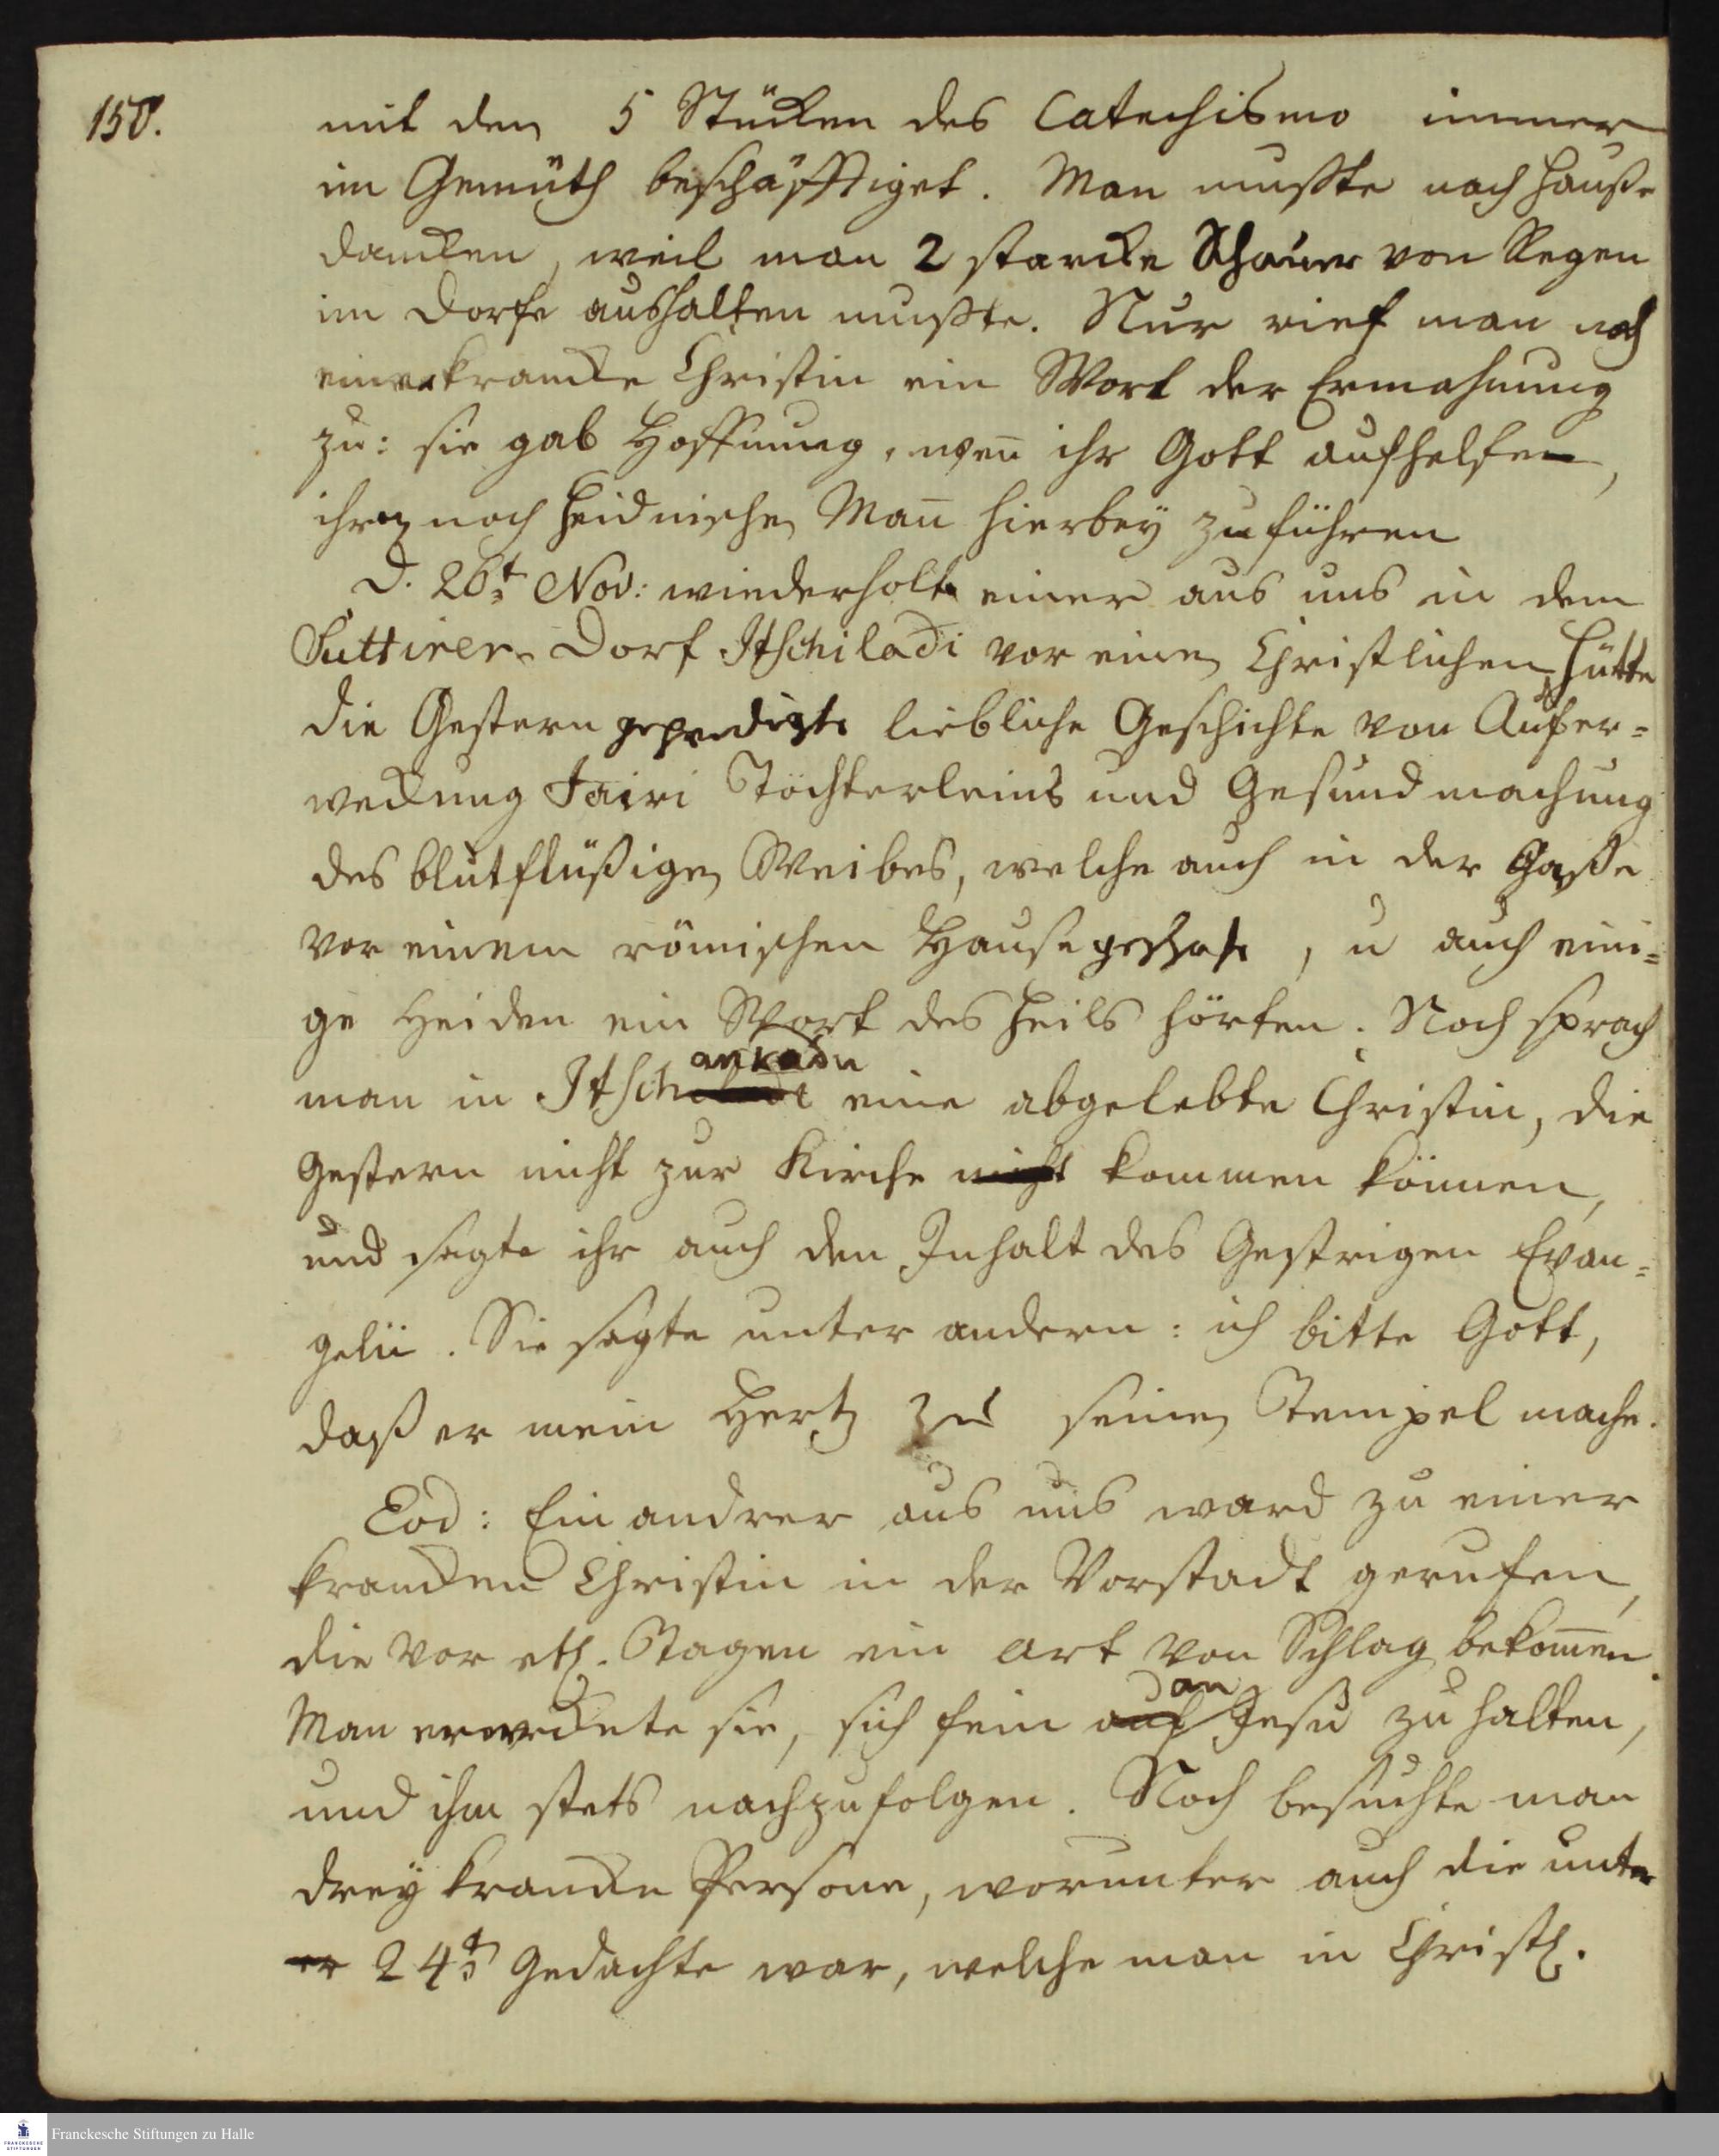 150.
mit den 5 Stücken des Catechismo immer
im Gemüth beschäfftiget. Man mußte nach Hauße
dancken, weil man 2 starcke Schauer von Regen
im Dorfe aushalten mußte. Nur rief man noch
einer krancke Christin ein Wort der Ermahnung
zu: sie gab Hoffnung, weñ ihr Gott aufhelfen,
ihren noch heidnischen Mañ hierbey zu führen
D. 26t Nov: wiederholte einer aus uns in dem
Suttirer-Dorf Itschiladi vor einen Christlichen Hütte
die Gestern gepredigte liebliche Geschichte von Aufer=
weckung Jairi Töchterleins und Gesundmachung
des blutflüßigen Weibes, welche auch in der Gaße
vor einem römischen Hause geschah, u auch eini=
ge Heiden ein Wort des Heils hörten. Noch sprach
ankadu
man in Itsch eine abgelebte Christin, die
Gestern nicht zur Kirche nicht kommen können,
und sagte ihr auch den Inhalt des Gestrigen Evan=
gelii. Sie sagte unter andern: ich bitte Gott,
daß er mein Hertz zu seinen Tempel mache.
Eod: Ein andrer aus uns ward zu einer
krancken Christin in der Vorstadt gerufen,
die vor etl. Tagen ein Art von Schlag bekom̃en.
an
Man erweckete sie, sich fein auf Jesu zu halten,
und ihm stets nachzufolgen. Noch besuchte man
drey krancke Persone, worunter auch die unter
er 24t Gedachte war, welche man in Christl.
Franckesche Stiftungen zu Halle
FRANCKESCHE STIFTUNGEN